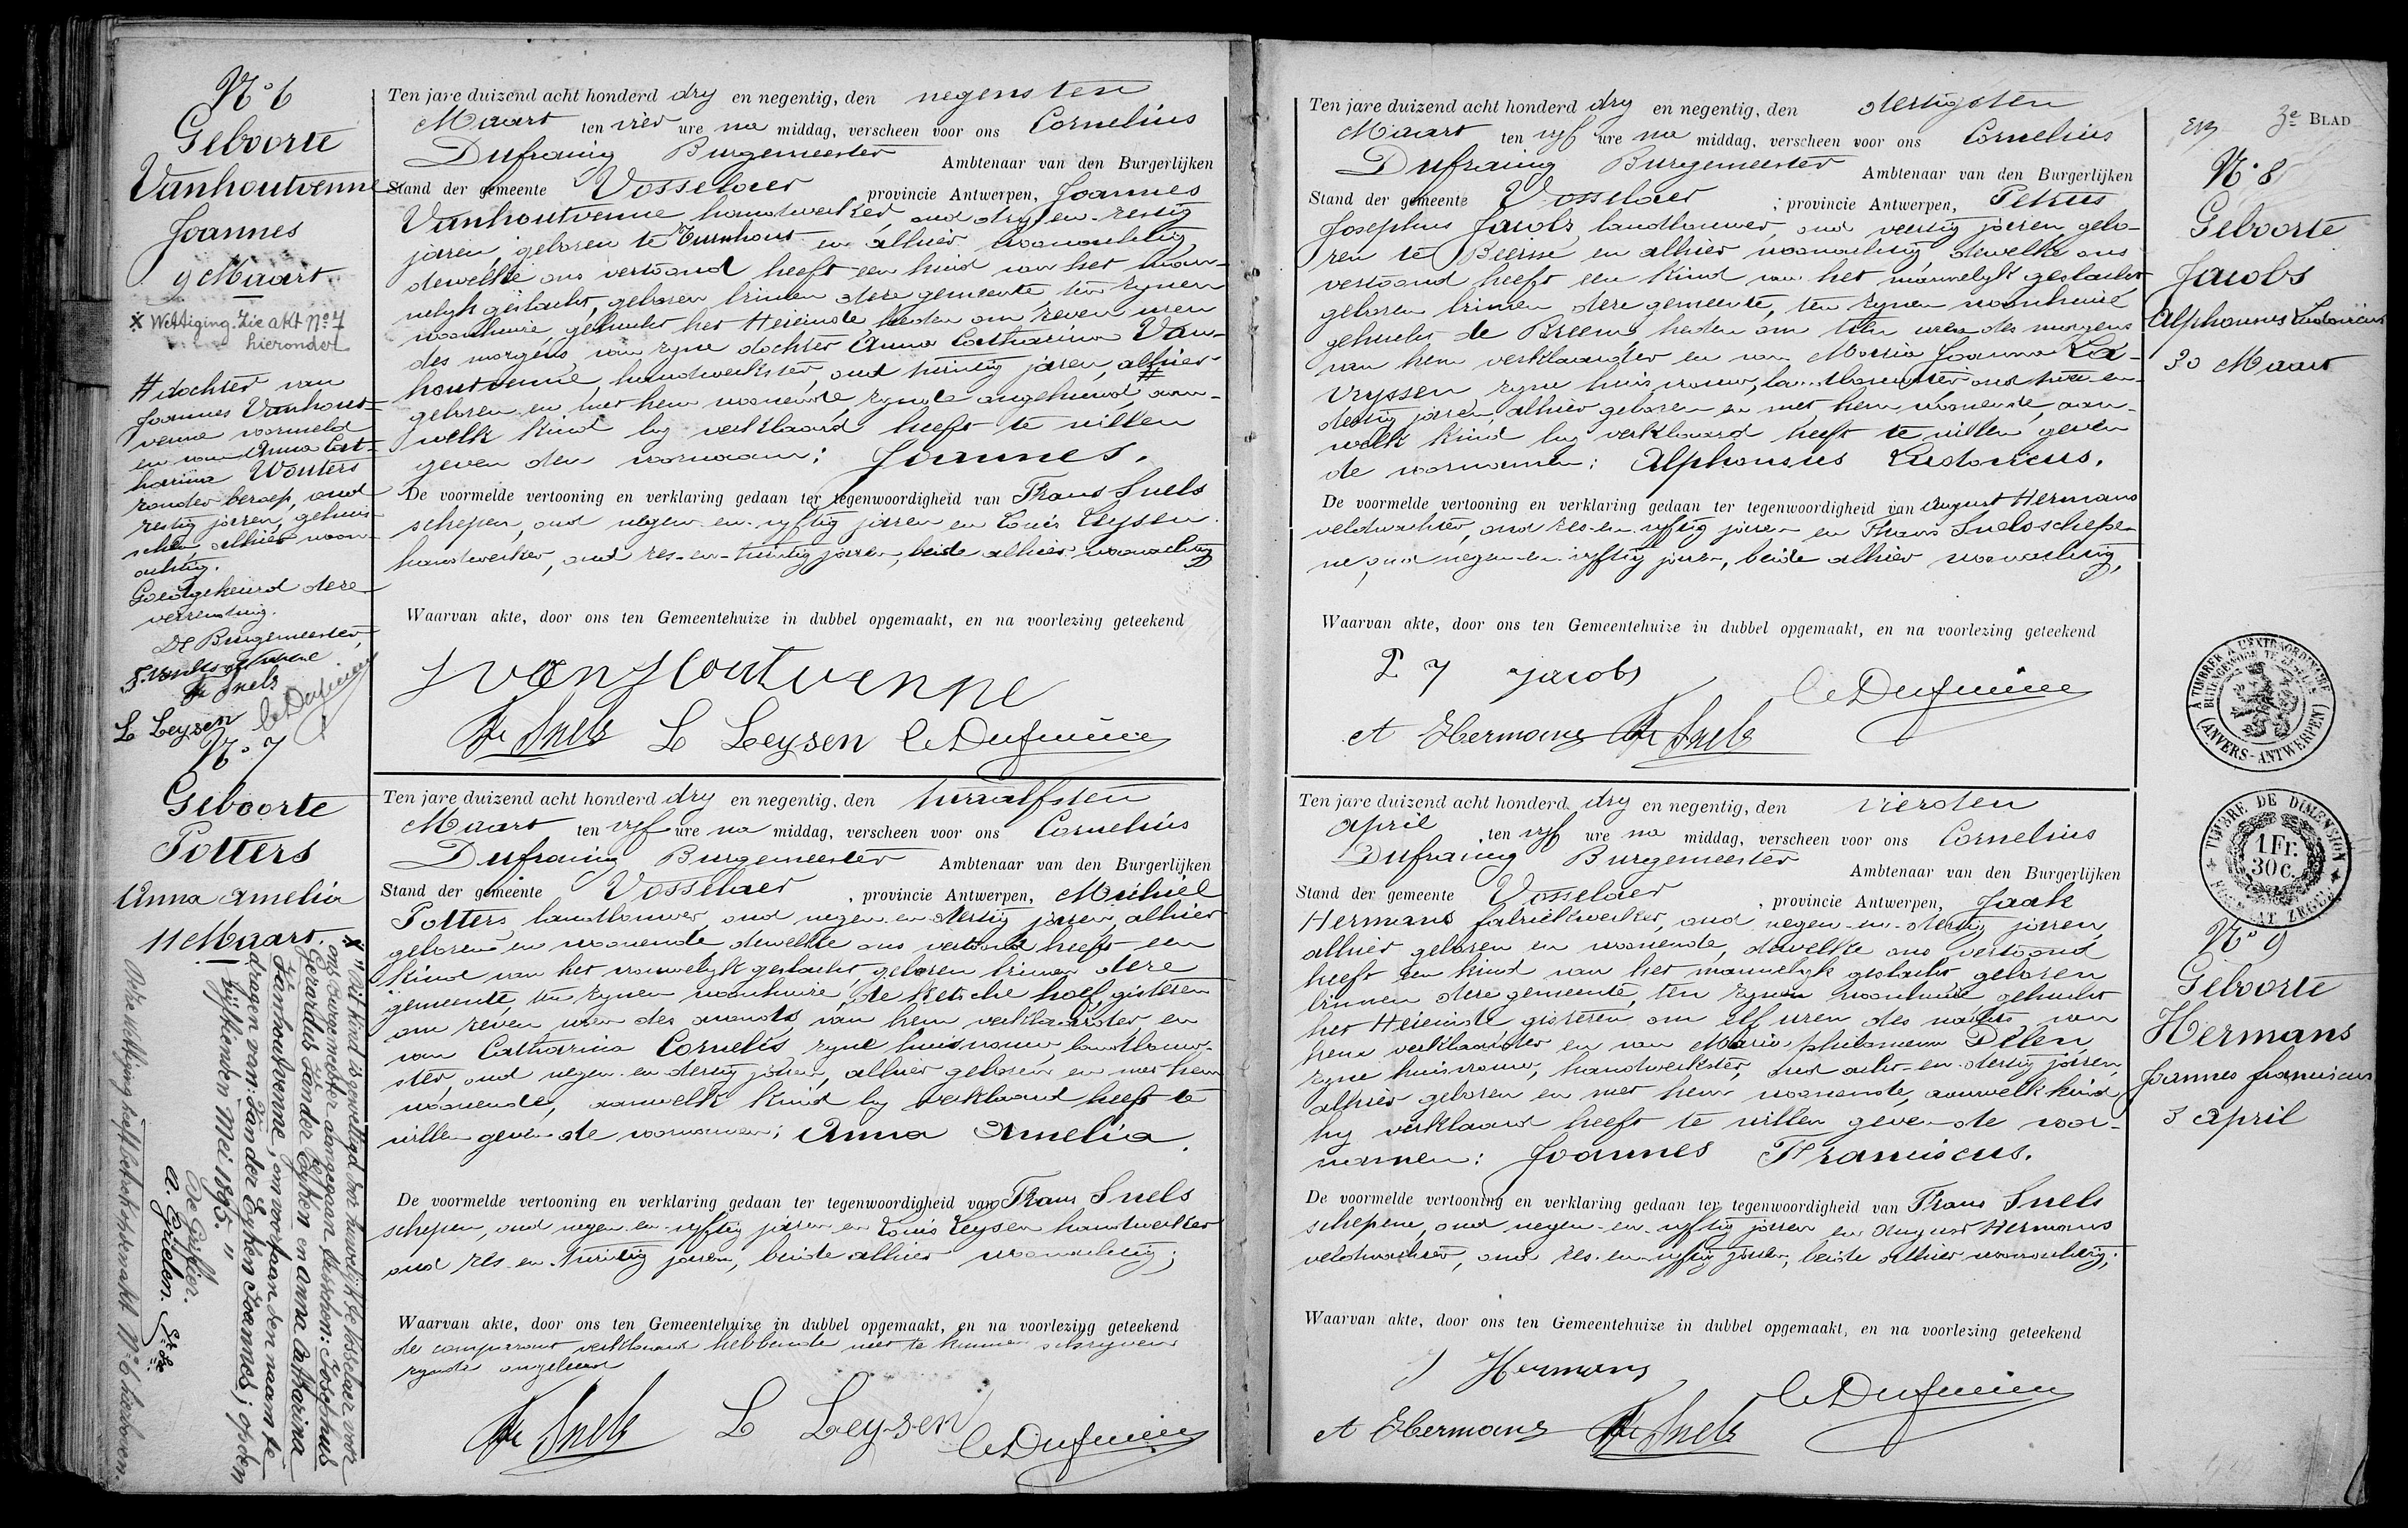 Nº 6
Geboorte
Vanhoutvenne
Joannes
9 Maart
X Wettiging. Zie akt Nº 7
hieronder
# dochter van
Joannes Vanhout-
venne voormeld
en van Anna Cat-
harina Wouters
zonder beroep, oud
zestig jaren, gehuis-
schen alhier woon-
achtig.
Goedgekeurd deze
verzending.
De Burgemeester,
Fr Snels
L Leysen C. Dufraing
Ten jare duizend acht honderd dry en negentig, den negensten
Maart ten vier ure na middag, verscheen voor ons Cornelius
Dufraing Burgemeester Ambtenaar van den Burgerlijken
Stand der gemeente Vosselaer, provincie Antwerpen, Joannes
Vanhoutvenne handwerker, oud dry en zestig
jaren, geboren te Turnhout en alhier woonachtig,
dewelke ons vertoond heeft een kind van het man-
nelyk geslacht, geboren binnen deze gemeente ten zynen
woonhuize, gehucht het Heieinde heden om zeven uren
des morgens, van zyne dochter Anna Catharina Van-
houtvenne, handwerkster, oud twintig jaren, alhier
geboren en met hem woonende, zynde ongehuwd # aan-
welk kind hy verklaard heeft te willen
geven den voornaam: Joannes.
De voormelde vertooning en verklaring gedaan ter tegenwoordigheid van Frans Snels
schepen, oud negen-en-vyftig jaren en Louis Leysen
handwerker, oud zes-en-twintig jaren, beide alhier woonachtig
Waarvan akte, door ons ten Gemeentehuize in dubbel opgemaakt, en na voorlezing geteekend
J van Houtvenne
Fr Snels L Leysen C. Dufraing
Nº 7
Geboorte
Potters
Anna Amelia
11 Maart.
X "Dit kind is gewettigd door huwelijk te Vosselaer voor
ons Burgemeester aangegaan tusschen: Josephus
Gerardus Van der Eyken en Anna Catharina
Vanhoutvenne, om voortaan den naam te
dragen van: Van der Eyken Joannes; op den
vijftienden Mei 1895."
De Griffier.
A. Gielen.
Deze wettiging heeft betrek op den akt Nº 6 hierboven.
Ten jare duizend acht honderd dry en negentig, den twaalfsten
Maart ten vyf ure na middag, verscheen voor ons Cornelius
Dufraing Burgemeester Ambtenaar van den Burgerlijken
Stand der gemeente Vosselaer, provincie Antwerpen, Michiel
Potters, landbouwer, oud negen-en-dertig jaren, alhier
geboren en woonende dewelke ons vertoond heeft een
kind van het vrouwelyk geslacht, geboren binnen deze
gemeente, ten zynen woonhuize, de Hetsche hoef, gisteren
om zeven uren des avonds, van hem verklaarder, en
van Catharina Cornelis, zyne huisvrouw, landbouw-
ster, oud negen-en-dertig jaren, alhier geboren en met hem
woonende, aanwelk kind hy verklaard heeft te
willen geven de voornamen: Anna Amelia.
De voormelde vertooning en verklaring gedaan ter tegenwoordigheid van Frans Snels
schepen, oud negen-en-vyftig jaren en Louis Leysen handwerker
oud zes-en-twintig jaren, beide alhier woonachtig;
Waarvan akte, door ons ten Gemeentehuize in dubbel opgemaakt, en na voorlezing geteekend
de comparant verklaard hebbende niet te kunnen schryven
zynde ongeleerd
Fr Snels L Leysen C. Dufraing
3e BLAD
Nº 8
Geboorte
Jacobs
Alphonsus Ludovicus
30 Maart
Ten jare duizend acht honderd dry en negentig, den dertigsten
Maart ten vyf ure na middag, verscheen voor ons Cornelius
Dufraing Burgemeester Ambtenaar van den Burgerlijken
Stand der gemeente Vosselaer, provincie Antwerpen, Petrus
Josephus Jacobs, landbouwer, oud veertig jaren, gebo-
ren te Beerse en alhier woonachtig, dewelke ons
vertoond heeft een kind van het mannelyk geslacht
geboren binnen deze gemeente, ten zynen woonhuize
gehucht de Breem, heden om tien uren des morgens
van hem verklaarder en van Maria Joanna La-
vryssen zyne huisvrouw, landbouwster oud twee-en-
dertig jaren, alhier geboren en met hem woonende, aan-
welk kind hy verklaard heeft te willen geven
de voornamen: Alphonsus Ludovicus.
De voormelde vertooning en verklaring gedaan ter tegenwoordigheid van August Hermans
veldwachter, oud zes-en-vyftig jaren en Frans Snels schepe-
ne, oud negen-en-vyftig jaren, beide alhier woonachtig,
Waarvan akte, door ons ten Gemeentehuize in dubbel opgemaakt, en na voorlezing geteekend
P J Jacobs C. Dufraing
A Hermans Fr Snels
A TIMBRER A L'EXTRAORDINAIRE
BUITENGEWOON TE ZEGELEN
(ANVERS - ANTWERPEN)
TIMBRE DE DIMENSION
1 Fr.
30 c.
FORMAAT ZEGEL
Nº 9
Geboorte
Hermans
Joannes Franciscus
3 April
Ten jare duizend acht honderd dry en negentig, den vierden
April ten vyf ure na middag, verscheen voor ons Cornelius
Dufraing Burgemeester Ambtenaar van den Burgerlijken
Stand der gemeente Vosselaer, provincie Antwerpen, Jaak
Hermans fabriekwerker, oud negen-en-dertig jaren,
alhier geboren en woonende, dewelke ons vertoond
heeft een kind van het mannelyk geslacht geboren
binnen deze gemeente, ten zynen woonhuize gehucht
het Heieinde gisteren om elf uren des nachts van
hem verklaarder en van Maria Philomena Delen
zyne huisvrouw, handwerkster, oud acht-en-dertig jaren,
alhier geboren en met hem woonende, aanwelk kind
hy verklaard heeft te willen geven de voor-
namen: Joannes Franciscus.
De voormelde vertooning en verklaring gedaan ter tegenwoordigheid van Frans Snels
schepene, oud negen-en-vyftig jaren en August Hermans
veldwachter, oud zes-en-vyftig jaren, beide alhier woonachtig;
Waarvan akte, door ons ten Gemeentehuize in dubbel opgemaakt, en na voorlezing geteekend
J Hermans C. Dufraing
A Hermans Fr Snels